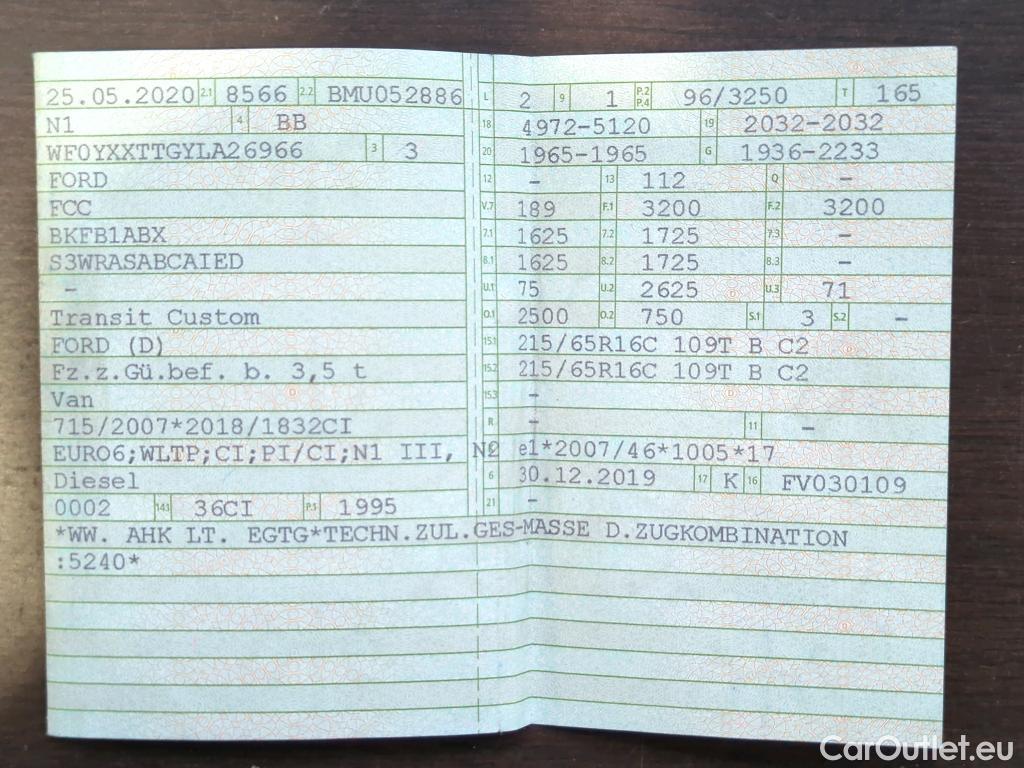 25.05.2020 2.1 8566 2.2 BMU052886 L 2 9 1 P.2 P.4 96/3250 T 165
N1 4 BB 18 4972-5120 19 2032-2032
WF0YXXTTGYLA26966 3 3 20 1965-1965 G 1936-2233
FORD 12 - 13 112 Q -
FCC V.7 189 F.1 3200 F.2 3200
BKFB1ABX 7.1 1625 7.2 1725 7.3 -
S3WRASABCAIED 8.1 1625 8.2 1725 8.3 -
- U.1 75 U.2 2625 U.3 71
Transit Custom O.1 2500 O.2 750 S.1 3 S.2 -
FORD (D) 15.1 215/65R16C 109T B C2
Fz.z.Gü.bef. b. 3,5 t 15.2 215/65R16C 109T B C2
Van 15.3 -
715/2007*2018/1832CI R - 11 -
EURO6;WLTP;CI;PI/CI;N1 III, N2 e1*2007/46*1005*17
Diesel 6 30.12.2019 17 K 16 FV030109
0002 14.1 36CI P.1 1995 21 -
*WW. AHK LT. EGTG*TECHN.ZUL.GES-MASSE D.ZUGKOMBINATION
:5240*
CarOutlet.eu